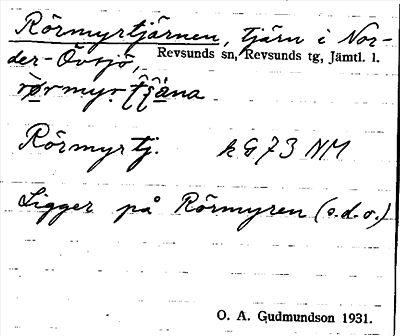 Rörmyrtjärnen, tjärn i Nor-
der-Övsjö, Revsunds sn, Revsunds tg, Jämtl. l.
Rörmyrtj. kG73 NM
Ligger på Rörmyren (s.d.o.)
O. A. Gudmundson 1931.